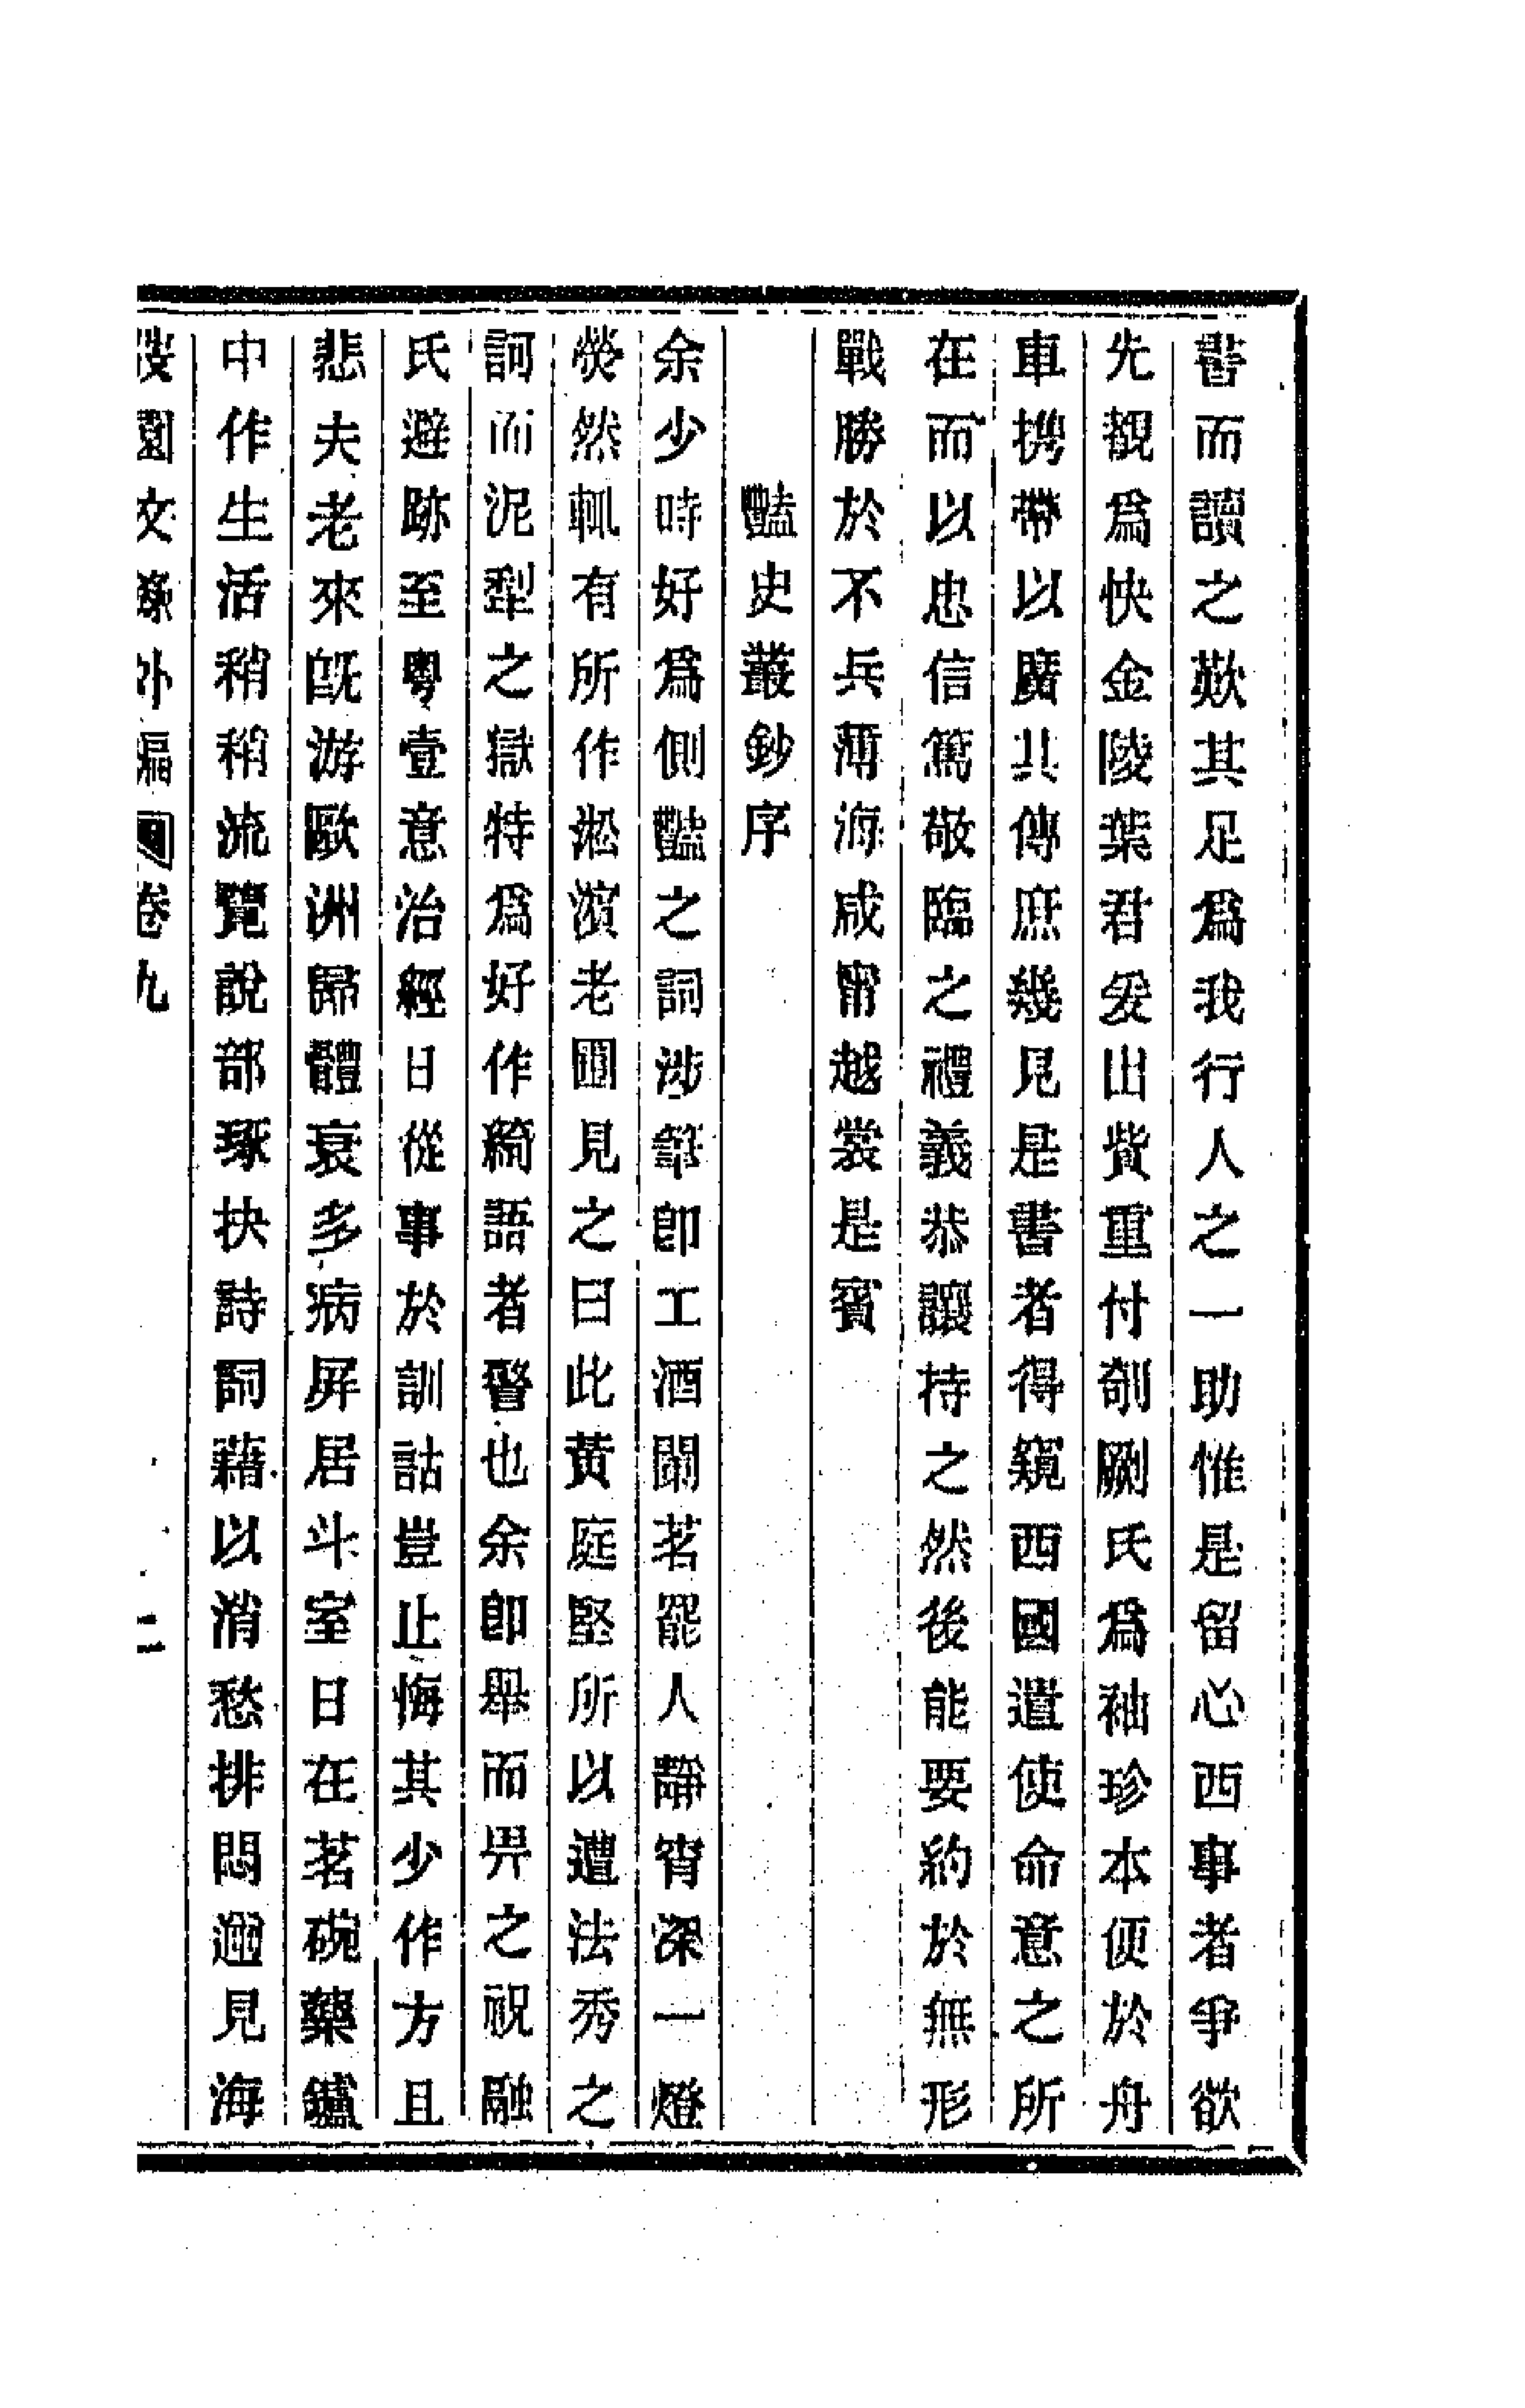 書而讀之歎其足爲我行人之一助惟是留心西事者爭欲
先覩爲快金陵葉君爰出貲重付剞劂氏爲袖珍本便於舟
車携帶以廣其傳庶幾見是書者得窺西國遣使命意之所
在而以忠信篤敬臨之禮義恭讓持之然後能要約於無形
戰勝於不兵薄海咸甯越裳是賓
豔史叢鈔序
余少時好爲側豔之詞涉筆卽工酒闌茗罷人靜宵深一燈
熒然輒有所作淞濱老圃見之曰此黃庭堅所以遭法秀之
訶而泥犁之獄特爲好作綺語者警也余卽舉而畀之祝融
氏避跡至粵壹意治經日從事於訓詁豈止悔其少作方且
悲夫老來旣游歐洲歸體衰多病屏居斗室日在茗碗藥鑪
中作生活稍稍流覽說部琢抉詩詞藉以消愁排悶邇見海
弢園文錄外編 卷九 二